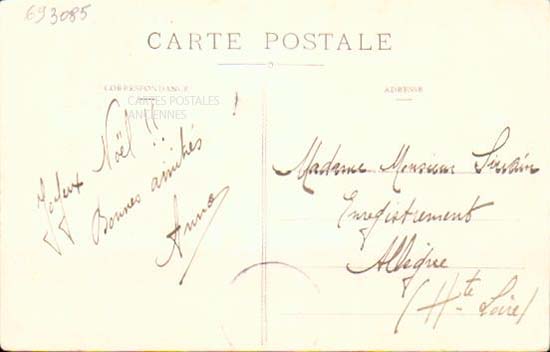 693085
CARTE POSTALE
CORRESPONDANCE
ADRESSE
CARTES POSTALES
ANCIENNES
Joyeux Noël !!!
Bonnes amitiés
Anna
Madame Monsieur
Enregistrement
Allègre
(Hte Loire)